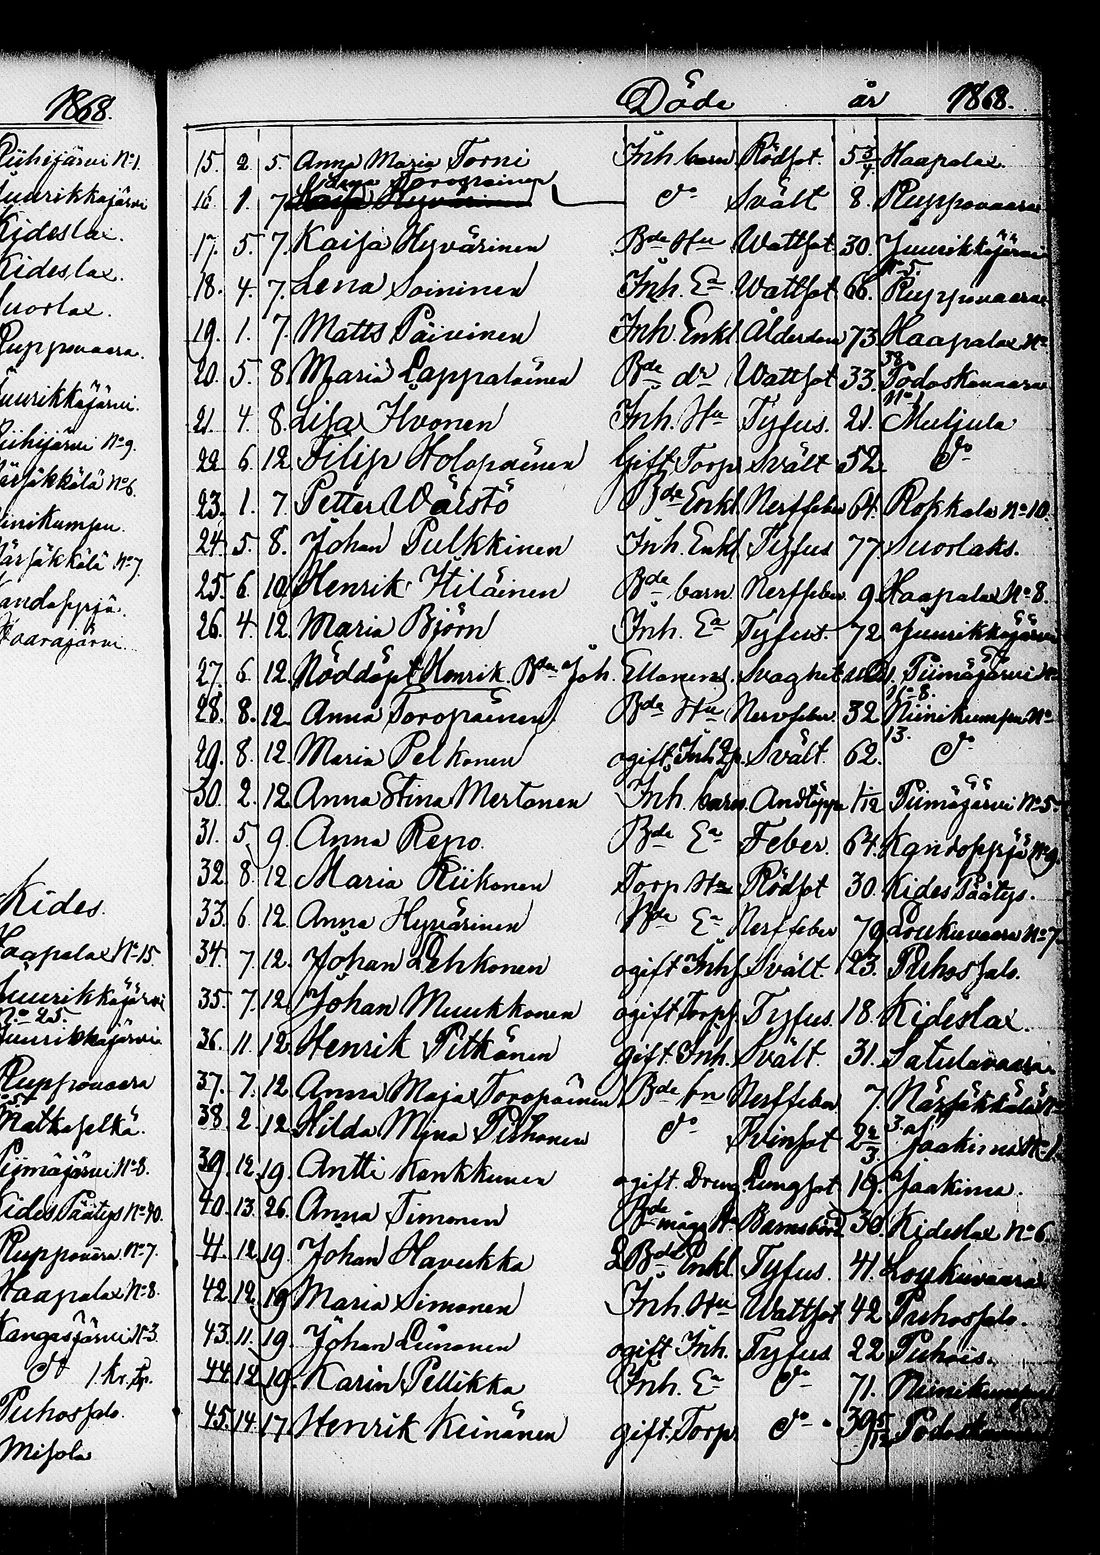 1868.
Kiihijärvi No 1.
Juurikkajärvi
Kideslax.
Kideslax.
Suorlax.
Ruppovaara.
Juurikkajärvi.
Kiihijärvi No 9.
Närsäkkälä No 6.
Niinikumpu.
Närsäkkälä No 7.
Kandosyrjä.
Vaarajärvi.
Kides.
Haapalax No 15.
Juurikkajärvi
No 25.
Juurikkajärvi.
Ruppovaara
Matkaselkä.
Piimäjärvi No 8.
Kides Päätys No 40.
Ruppovara No 7.
Haapalax No 8.
Kangasjärvi No 3.
Puhossalo.
Misola
Döde år 1868.
15. 2. 5. Anna Maria Torni Inh. barn Rödsot. 5 3/4 Haapalax.
Toropainen
16. 1. 7. Kaisa Hyvärinen do Svält 8. Ruppovaara
17. 5. 7. Kaisa Hyvärinen Bde Hu Wattsot. 30. Juurikkajärvi
No 5.
18. 4. 7. Lena Soininen Inh. Ea Wattsot 66. Ruppovaara
19. 1. 7. Matts Päivinen Inh. Enkl. Ålderdom 73. Haapalax No
38.
20. 5. 8. Maria Lappalainen Bde dr Wattsot 33. Potoskavaara
No 1
21. 4. 8. Lisa Ihvonen Inh. Hu Tyfus. 21. Muljula
22. 6. 12. Filip Holopainen Gift. Torp. Svält 52. do
23. 1. 7. Petter Wäistö Bde Enkl. Nerffeber 64. Rokkala No 10.
24. 5. 8. Johan Pulkkinen Inh. Enkl Tyfus 77 Suorlaks.
25. 6. 10. Henrik Hiläinen Bde barn Nerffeber 9. Haapalax No 8.
26. 4. 12. Maria Björn Inh. Ea Tyfus. 72. Juurikkajärvi
27. 6. 12. Nöddöpt Henrik. Bden Joh. Ellonens. Svaghet Piimäjärvi No
No 8.
28. 8. 12. Anna Toropainen. Bde Hu Nervfeber. 32. Niinikumpu No
13.
29. 8. 12. Maria Pelkonen ogift. Inh. Svält. 62. do
30. 2. 12. Anna Stina Mertanen Inh. barn. Andtäppa 1/12 Piimäjärvi No 5.
31. 5. 9. Anna Repo. Bde Ea Feber. 64. Kandosyrjä No 9.
32. 8. 12. Maria Riikonen Torp. Hu Rödsot 30. Kides Päätys.
33. 6. 12. Anna Hyvärinen Bde Ea Nerffeber 79. Loukuvaara No 7.
34. 7. 12. Johan Lehkonen ogift Inh. Svält. 23. Puhossalo.
35. 7. 12. Johan Muukkonen ogift Torps. Tyfus. 18. Kideslax.
36. 11. 12. Henrik Pitkänen gift. Inh. Svält. 31. Satulavaara
37. 7. 12. Anna Maja Toropainen Bde bn Nerffeber 7. Närsäkkälä No
3.
38. 2. 12. Hilda Mina Pirhonen do Tvinsot 2 2/3 Jaakima No 1.
39. 12. 19. Antti Konkkunen ogift. Dreng. Lungsot 19. Jaakima.
40. 13. 26. Anna Timonen Bde mågs Hu Barnsbörd 30. Kideslax No 6.
41. 12. 19. Johan Havukka Bde Enkl. Tyfus. 41. Loukuvaara
42. 12. 19. Maria Simonen Inh. Hu Wattsot 42 Puhossalo.
43. 11. 19. Johan ogift. Inh. Tyfus 22 Puhois.
44. 12. 19. Karin Pellikka Inh. Ea do 71. Niinikumpu
45. 14. 17. Henrik Keinänen gift. Torp. do 39 5/12 Potoskavaara